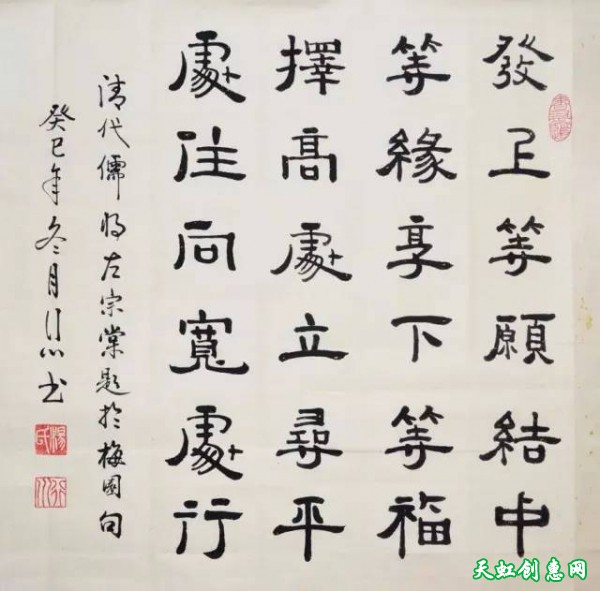 發上等願結中
等緣享下等福
擇高處立尋平
處住向寬處行
清代儒将左宗棠题於梅园句
癸巳年冬月 书
天虹创惠网